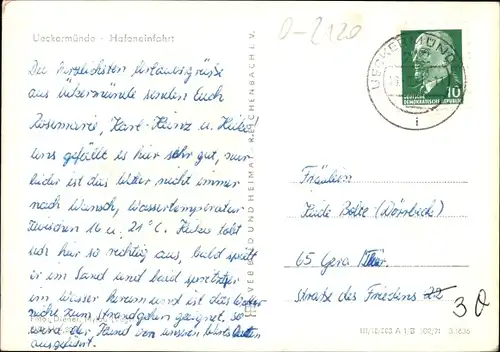 Ueckermünde - Hafeneinfahrt
Die herzlichsten Urlaubsgrüße
aus Ückermünde senden Euch
Rosemarie, Karl-Heinz u. Heiko!
Uns gefällt es hier sehr gut, nur
leider ist das Wetter nicht immer
nach Wunsch, Wassertemperatur
zwischen 16 u. 21° C. Heiko tobt
sich hier so richtig aus, bald spielt
er im Sand und bald spritzt er
im Wasser herum und ist das Wetter
nicht zum strandgehen geeignet, so
wird der Hund von unseren
ausgeführt.
VEB BILD UND HEIMAT REICHENBACH I. V.
0-2120
UECKERMÜNDE
i
10
DEUTSCHE
DEMOKRATISCHE REPUBLIK
Fräulein
Heide Bolte (Dörbeck)
65 Gera Thür.
Straße des Friedens 22
30